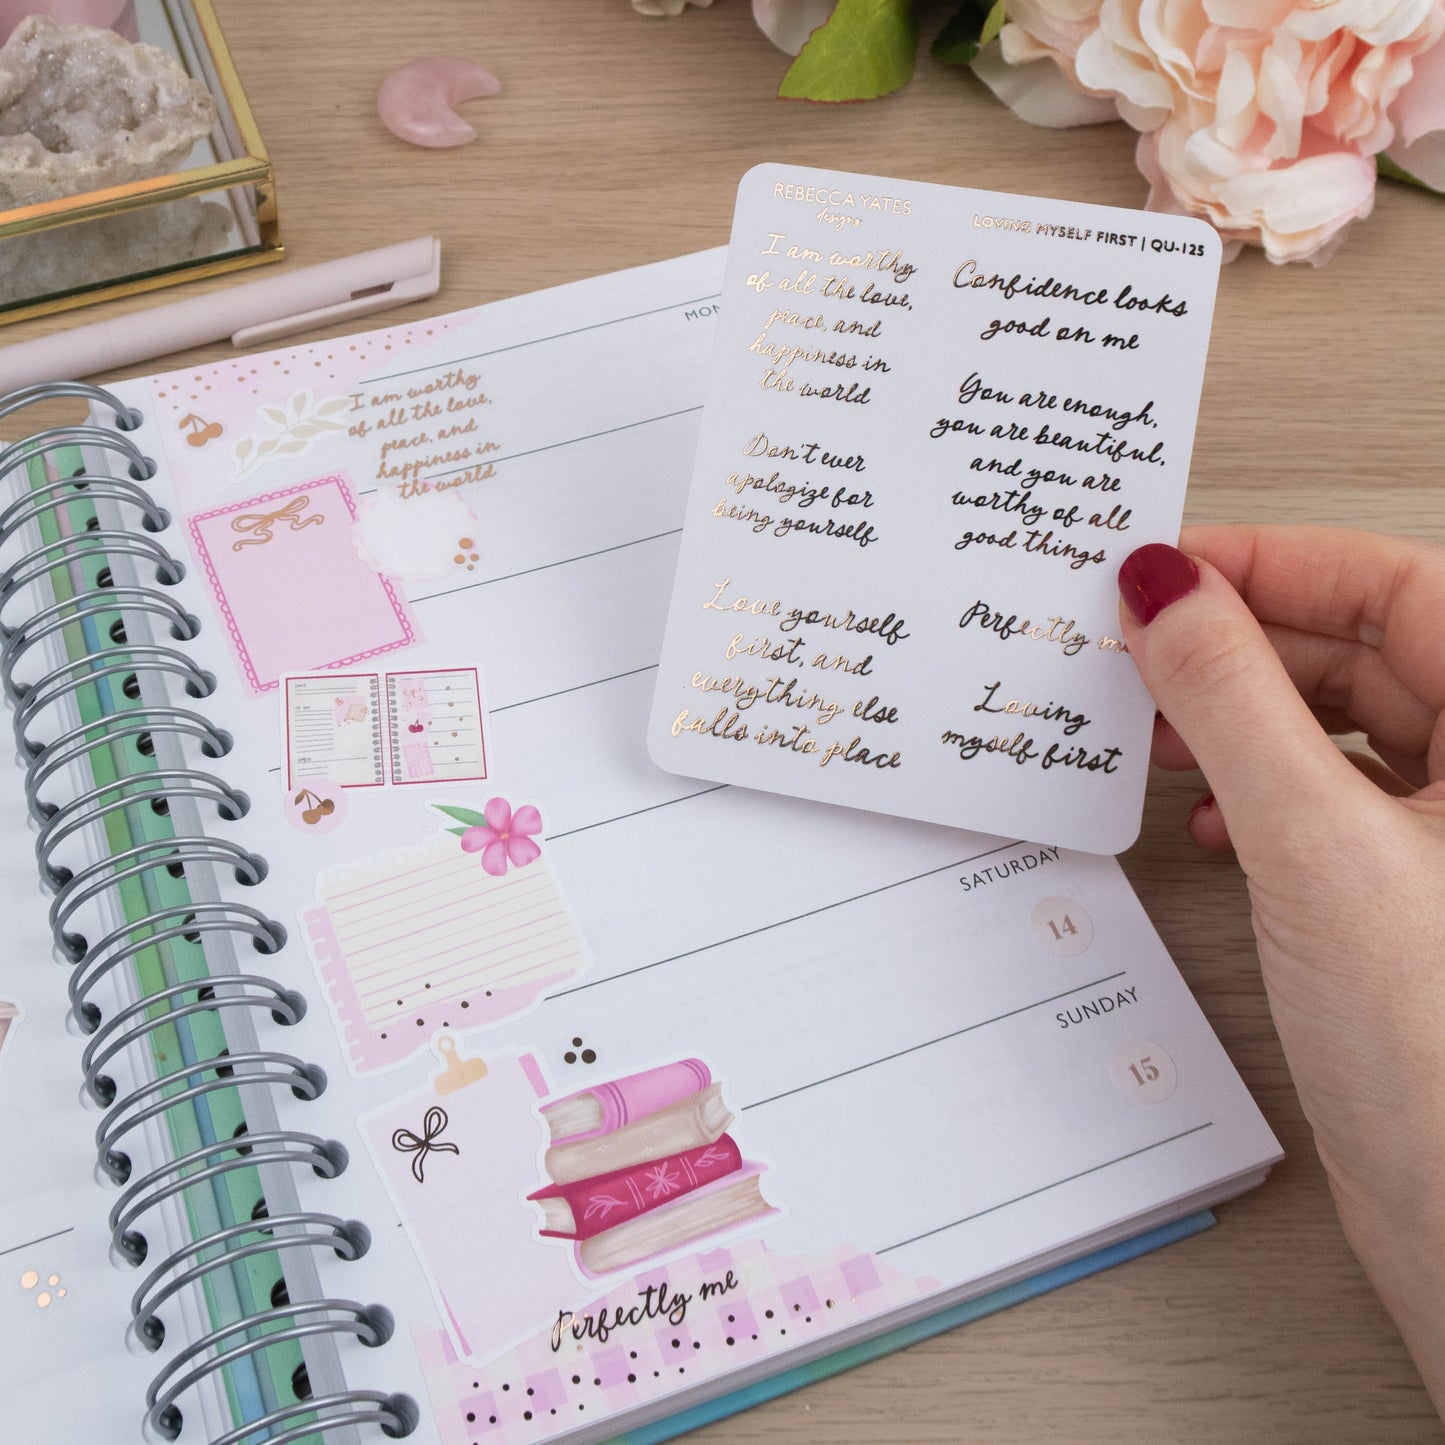 REBECCA YATES
designs
LOVING MYSELF FIRST | QU-125
I am worthy
of all the love,
peace, and
happiness in
the world
Confidence looks
good on me
Don't ever
apologize for
being yourself
You are enough,
you are beautiful,
and you are
worthy of all
good things
Love yourself
first, and
everything else
falls into place
Perfectly me
Loving
myself first
MON
I am worthy
of all the love,
peace, and
happiness in
the world
SATURDAY
14
SUNDAY
15
Perfectly me